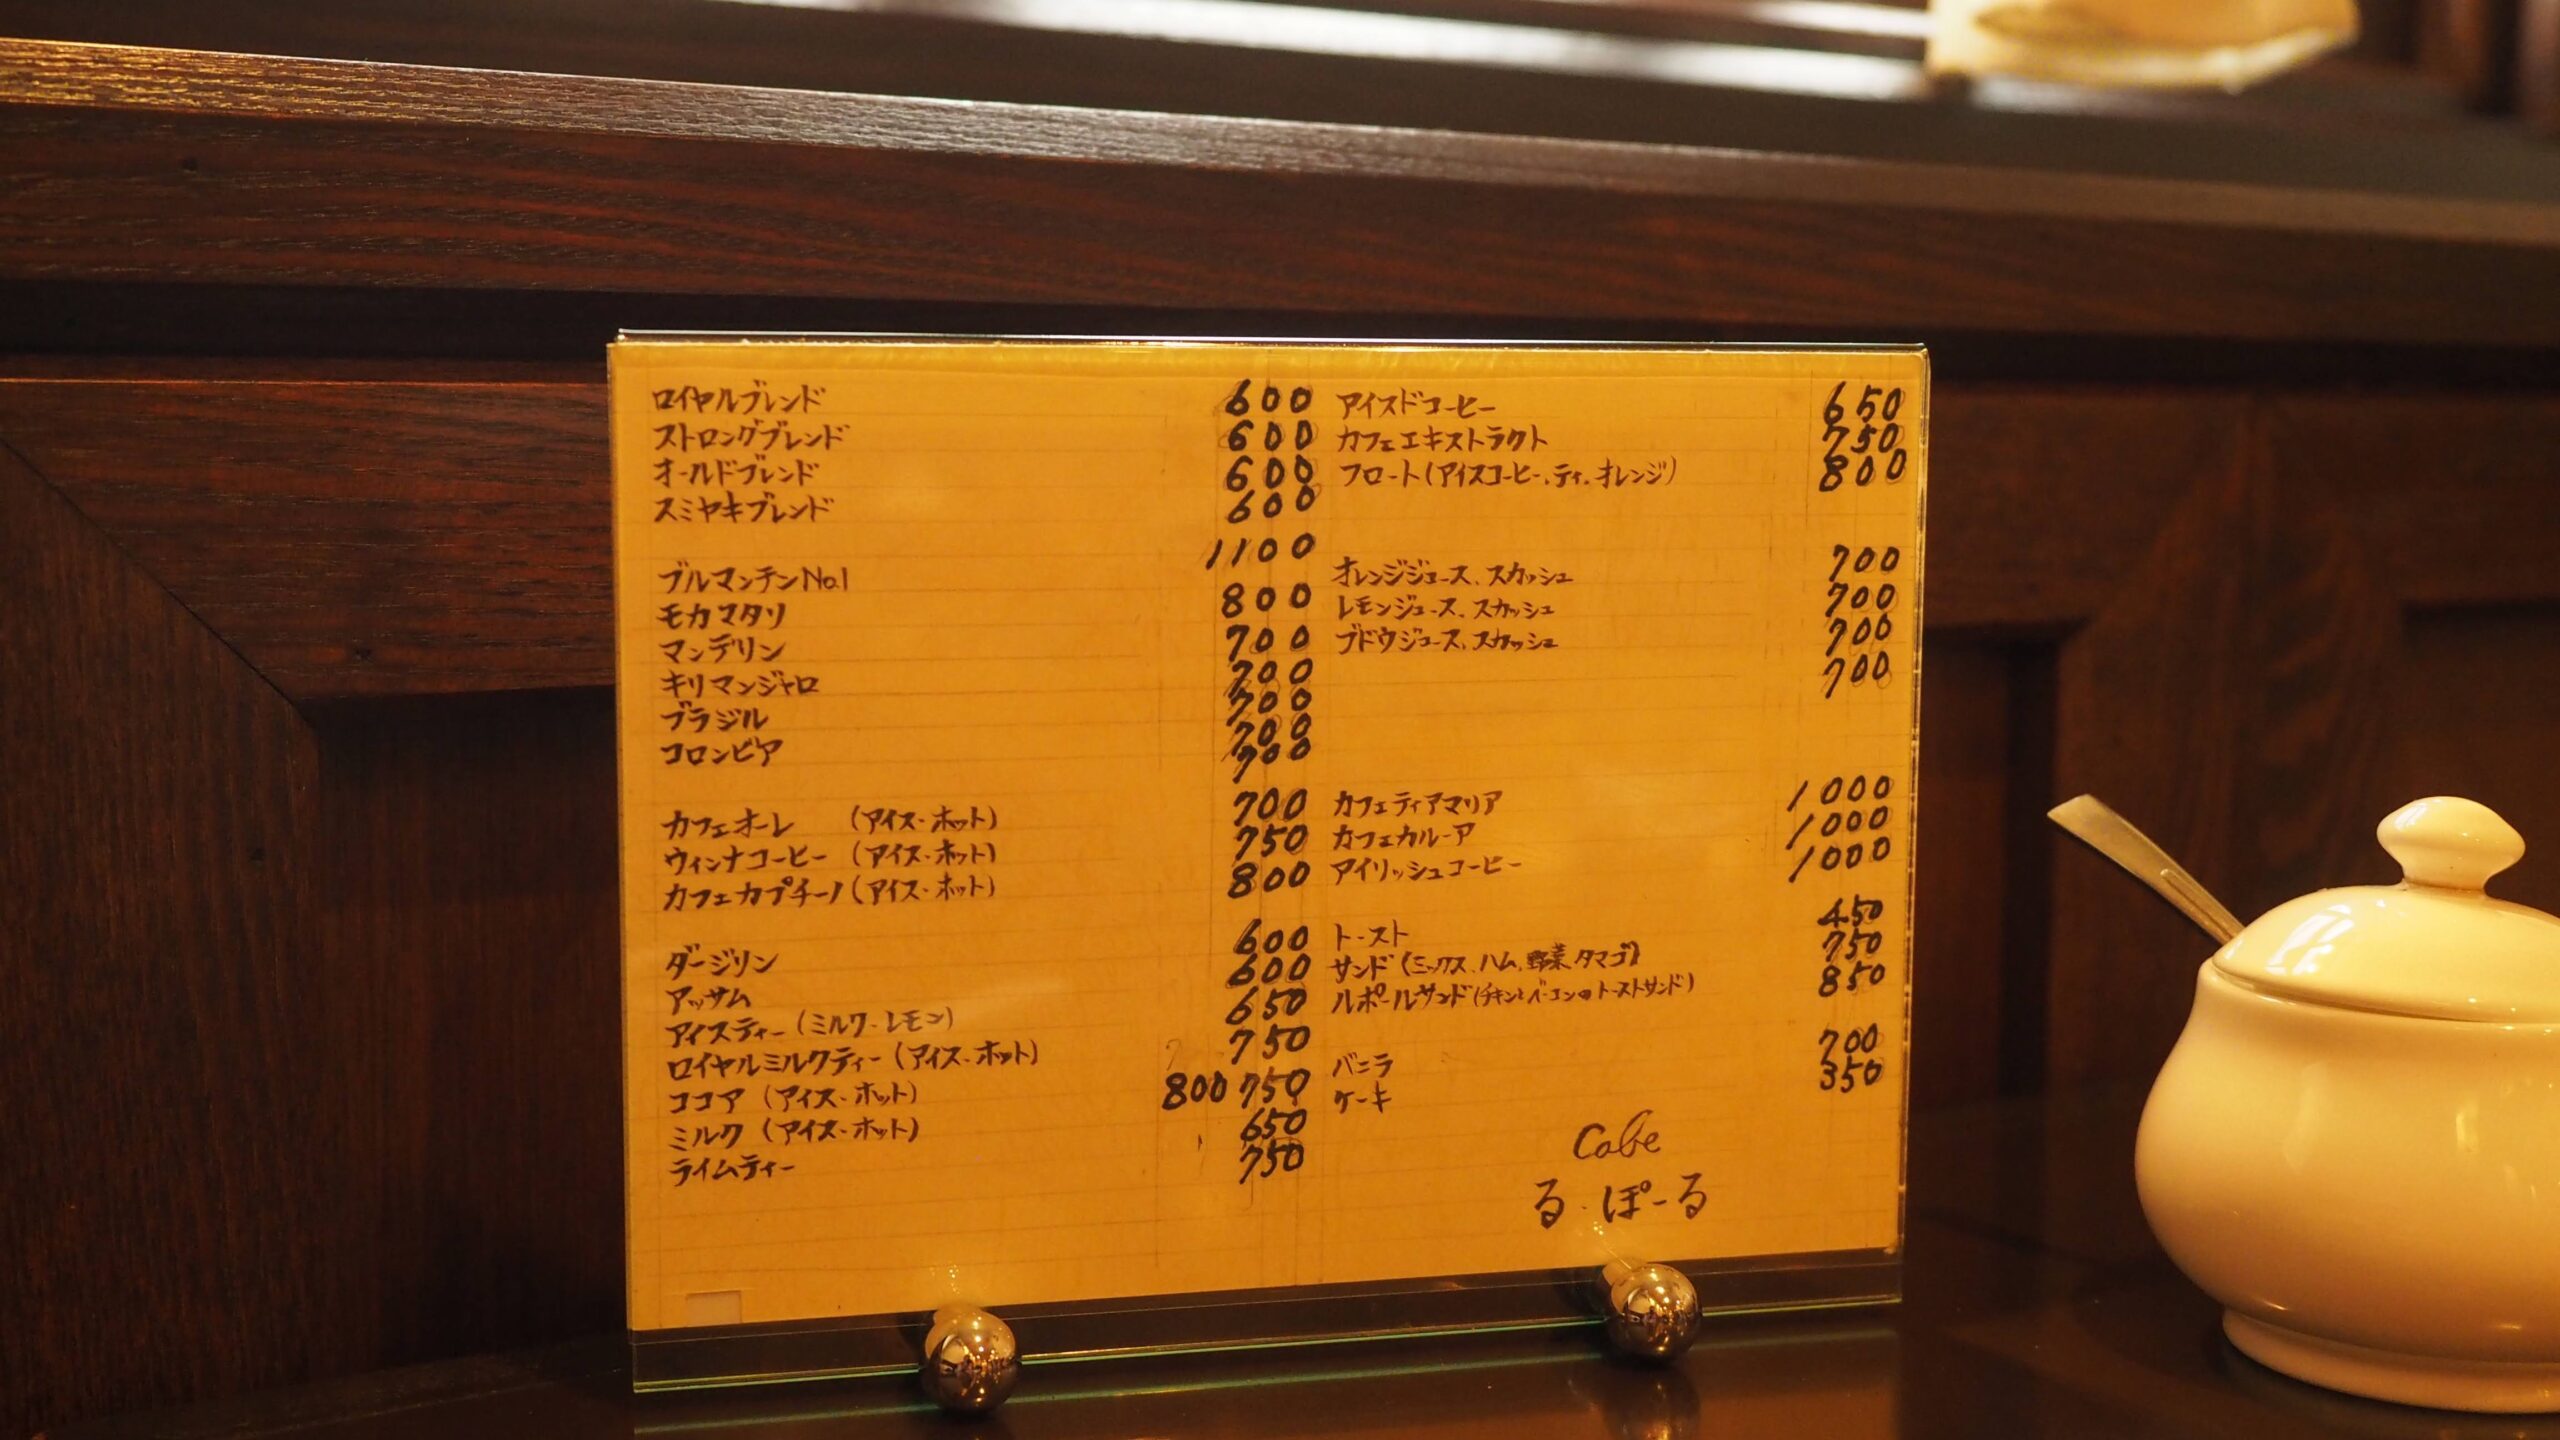 ロイヤルブレンド 600
ストロングブレンド 600
オールドブレンド 600
スミヤキブレンド 600
1100
ブルマンテンNo.1
モカマタリ 800
マンデリン 700
キリマンジャロ 700
ブラジル 700
コロンビア 700
700
カフェオーレ (アイス・ホット) 700
ウィンナコーヒー (アイス・ホット) 750
カフェカプチーノ (アイス・ホット) 800
ダージリン 600
アッサム 600
アイスティー (ミルク・レモン) 650
ロイヤルミルクティー (アイス・ホット) 750
ココア (アイス・ホット) 800 750
ミルク (アイス・ホット) 650
ライムティー 750
アイスドコーヒー 650
カフェエキストラクト 750
フロート (アイスコーヒー、ティ、オレンジ) 800
オレンジジュース、スカッシュ 700
レモンジュース、スカッシュ 700
ブドウジュース、スカッシュ 700
700
カフェティアマリア 1000
カフェカルーア 1000
アイリッシュコーヒー 1000
トースト 450
サンド (ミックス、ハム、野菜、タマゴ) 750
ルポールサンド (チキンとベーコンのトーストサンド) 850
バニラ 700
ケーキ 350
Cafe
る・ぽーる